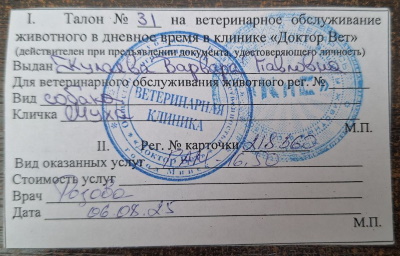 I. Талон № 31 на ветеринарное обслуживание
животного в дневное время в клинике «Доктор Вет»
(действителен при предъявлении документа, удостоверяющего личность)
Выдан Варвара Павловна
Для ветеринарного обслуживания животного рег. №
Вид собака
Кличка
М.П.
ВЕТЕРИНАРНАЯ
КЛИНИКА
II. Рег. № карточки 215060
Вид оказанных услуг 16.50
Стоимость услуг
Врач
Дата 06.08.25
М.П.